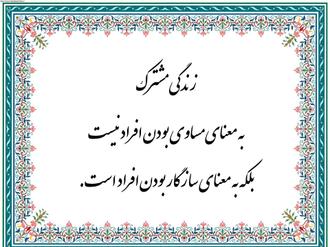 زندگی مشترک
به معنای مساوی بودن افراد نیست
بلکه به معنای سازگار بودن افراد است.